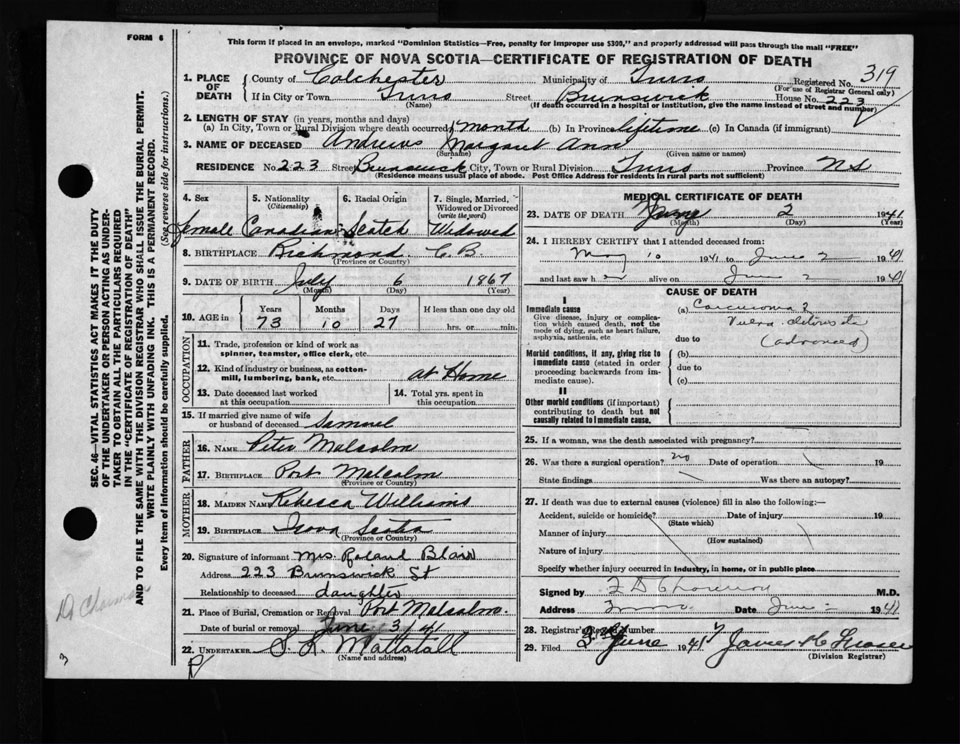 FORM 6
This form if placed in an envelope, marked "Dominion Statistics—Free, penalty for improper use $300," and properly addressed will pass through the mail "FREE"
PROVINCE OF NOVA SCOTIA—CERTIFICATE OF REGISTRATION OF DEATH
SEC. 46—VITAL STATISTICS ACT MAKES IT THE DUTY
OF THE UNDERTAKER OR PERSON ACTING AS UNDER-
TAKER TO OBTAIN ALL THE PARTICULARS REQUIRED
IN THE "CERTIFICATE OF REGISTRATION OF DEATH"
AND TO FILE THE SAME WITH THE DIVISION REGISTRAR WHO SHALL ISSUE THE BURIAL PERMIT.
WRITE PLAINLY WITH UNFADING INK. THIS IS A PERMANENT RECORD.
Every item of information should be carefully supplied. (See reverse side for instructions.)
1. PLACE OF DEATH
County of Colchester Municipality of Truro Registered No. 319
(For use of Registrar General only)
If in City or Town Truro Street Brunswick House No. 223
(Name) (If death occurred in a hospital or institution, give the name instead of street and number)
2. LENGTH OF STAY (in years, months and days)
(a) In City, Town or Rural Division where death occurred 1 month (b) In Province lifetime (c) In Canada (if immigrant)
3. NAME OF DECEASED Andrews Margaret Ann
(Surname) (Given name or names)
RESIDENCE No. 223 Street Brunswick City, Town or Rural Division Truro Province NS
(Residence means usual place of abode. Post Office Address for residents in rural parts not sufficient)
4. Sex
female
5. Nationality
(Citizenship)
Canadian
6. Racial Origin
Scotch
7. Single, Married,
Widowed or Divorced
(write the word)
Widowed
8. BIRTHPLACE Richmond C.B.
(Province or Country)
9. DATE OF BIRTH July 6 1867
(Month) (Day) (Year)
10. AGE in
Years Months Days If less than one day old
73 10 27 hrs. or min.
OCCUPATION
11. Trade, profession or kind of work as
spinner, teamster, office clerk, etc.
12. Kind of industry or business, as cotton-
mill, lumbering, bank, etc. at Home
13. Date deceased last worked
at this occupation
14. Total yrs. spent in
this occupation
15. If married give name of wife
or husband of deceased Samuel
FATHER
16. NAME Peter Malcolm
17. BIRTHPLACE Port Malcolm
(Province or Country)
MOTHER
18. MAIDEN NAME Rebecca Williams
19. BIRTHPLACE Nova Scotia
(Province or Country)
20. Signature of informant Mrs. Roland Blair
Address 223 Brunswick St
Relationship to deceased daughter
21. Place of Burial, Cremation or Removal Port Malcolm.
Date of burial or removal June 3/41
22. UNDERTAKER S. L. Mattatall
(Name and address)
MEDICAL CERTIFICATE OF DEATH
23. DATE OF DEATH June 2 1941
(Month) (Day) (Year)
24. I HEREBY CERTIFY that I attended deceased from:
May 10 1941 to June 2 1941
and last saw h alive on June 2 1941
CAUSE OF DEATH
I
Immediate cause
Give disease, injury or complica-
tion which caused death, not the
mode of dying, such as heart failure,
asphyxia, asthenia, etc
(a) Carcinoma
Vulva
due to
(advanced)
Morbid conditions, if any, giving rise to
immediate cause (stated in order
proceeding backwards from im-
mediate cause).
(b)
due to
(c)
II
Other morbid conditions (if important)
contributing to death but not
causally related to immediate cause.
25. If a woman, was the death associated with pregnancy?
26. Was there a surgical operation? no Date of operation 19
State findings Was there an autopsy?
27. If death was due to external causes (violence) fill in also the following:—
Accident, suicide or homicide? Date of injury 19
(State which)
Manner of injury
(How sustained)
Nature of injury
Specify whether injury occurred in industry, in home, or in public place
Signed by M.D.
Address Truro Date June 1941
28. Registrar's Record Number
29. Filed 2 June 1941 James
(Division Registrar)